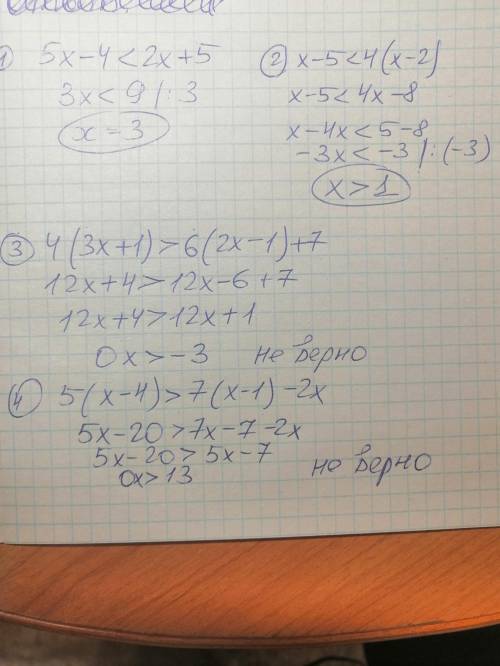 1) 5x-4<2x+5
3x<9 |:3
x=3
② x-5<4(x-2)
x-5<4x-8
x-4x<5-8
-3x<-3 |:(-3)
x>1
③ 4(3x+1)>6(2x-1)+7
12x+4>12x-6+7
12x+4>12x+1
0x>-3 не верно
④ 5(x-4)>7(x-1)-2x
5x-20>7x-7-2x
5x-20>5x-7
0x>13 не верно